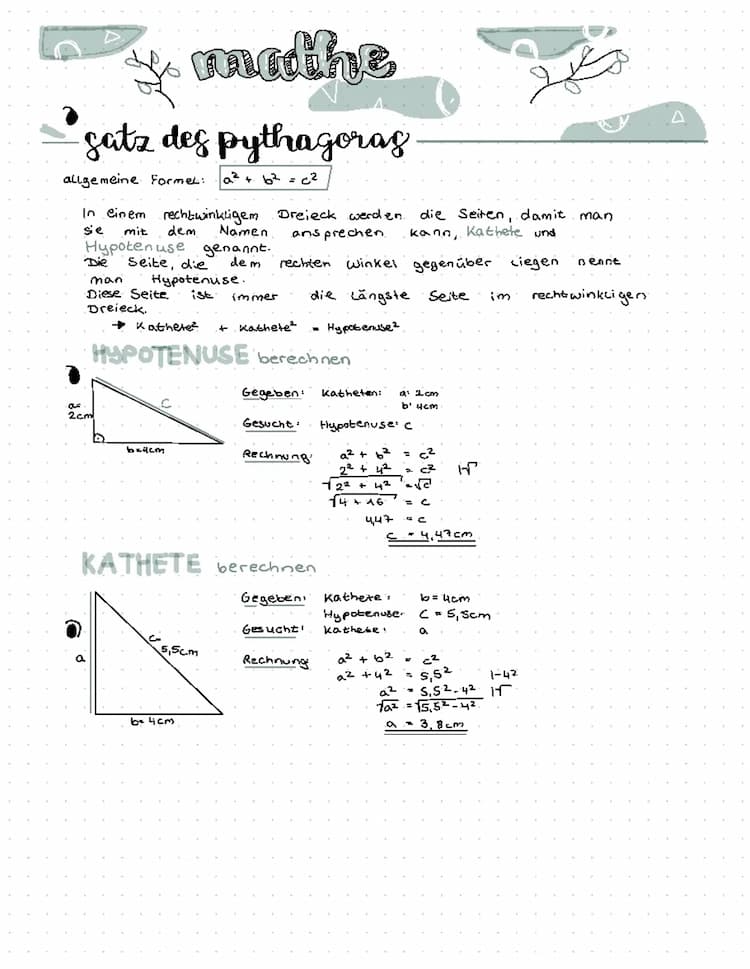 mathe
satz des pythagoras
allgemeine Formel: a² + b² = c²
In einem rechtwinkligem Dreieck werden die Seiten, damit man
sie mit dem Namen ansprechen kann, Kathete und
Hypotenuse genannt.
Die Seite, die dem rechten Winkel gegenüber liegen nennt
man Hypotenuse.
Diese Seite ist immer die Längste Seite im rechtwinkligen
Dreieck.
→ Kathete² + Kathete² = Hypotenuse²
HYPOTENUSE berechnen
a=
2cm
c
b=4cm
Gegeben: Katheten: a: 2cm
b: 4cm
Gesucht: Hypotenuse: c
Rechnung: a² + b² = c²
2² + 4² = c² |√
√2² + 4² = √c
√4 + 16 = c
4,47 = c
c = 4,47cm
KATHETE berechnen
a
c=
5,5cm
b= 4cm
Gegeben: Kathete: b= 4cm
Hypotenuse: C = 5,5cm
Gesucht: Kathete: a
Rechnung a² + b² = c²
a² + 4² = 5,5² |-4²
a² = 5,5² - 4² |√
√a² = √5,5² - 4²
a = 3,8cm